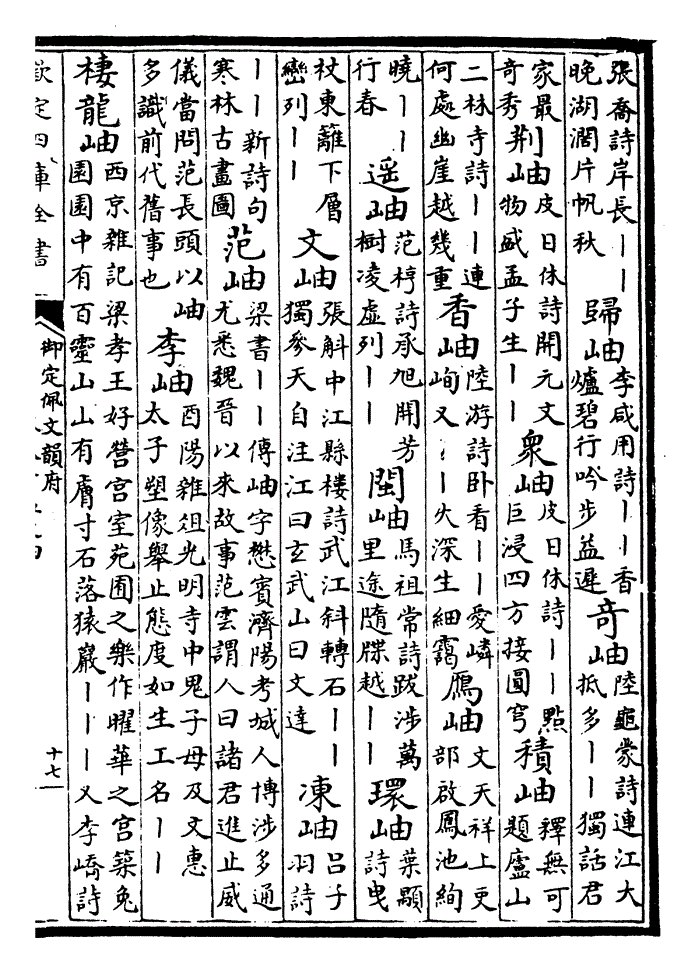 張喬詩岸長丨丨晚湖濶片帆秋 歸岫 李咸用詩丨丨香爐碧行吟步益遲 奇岫 陸龜蒙詩連江大抵多丨丨獨話君
家最奇秀 荆岫 皮日休詩開元文物盛孟子生丨丨 衆岫 皮日休詩丨丨點巨浸四方接圓穹 積岫 釋無可題廬山
二林寺詩丨丨連何處幽崖越幾重 香岫 陸游詩卧看丨丨愛嶙峋又丨丨火深生細靄 鴈岫 文天祥上吏部啟鳳池絢
曉丨丨行春 遥岫 范梈詩承旭開芳樹凌虛列丨丨 閩岫 馬祖常詩跋涉萬里途隨牒越丨丨 環岫 葉顒詩曳
杖東籬下層巒列丨丨 文岫 張斛中江縣樓詩武江斜轉石丨丨獨參天自注江曰玄武山曰文達 凍岫 吕子羽詩
丨丨新詩句寒林古畫圖 范岫 梁書丨丨傳岫字懋賓濟陽考城人博涉多通尤悉魏晉以來故事范雲謂人曰諸君進止威
儀當問范長頭以岫多識前代舊事也 李岫 酉陽雜俎光明寺中鬼子母及文惠太子塑像舉止態度如生工名丨丨
棲龍岫 西京雜記梁孝王好營宫室苑囿之樂作曜華之宫築兔園園中有百靈山山有膚寸石落猿巖丨丨丨又李嶠詩
欽定四庫全書
御定佩文韻府
十七